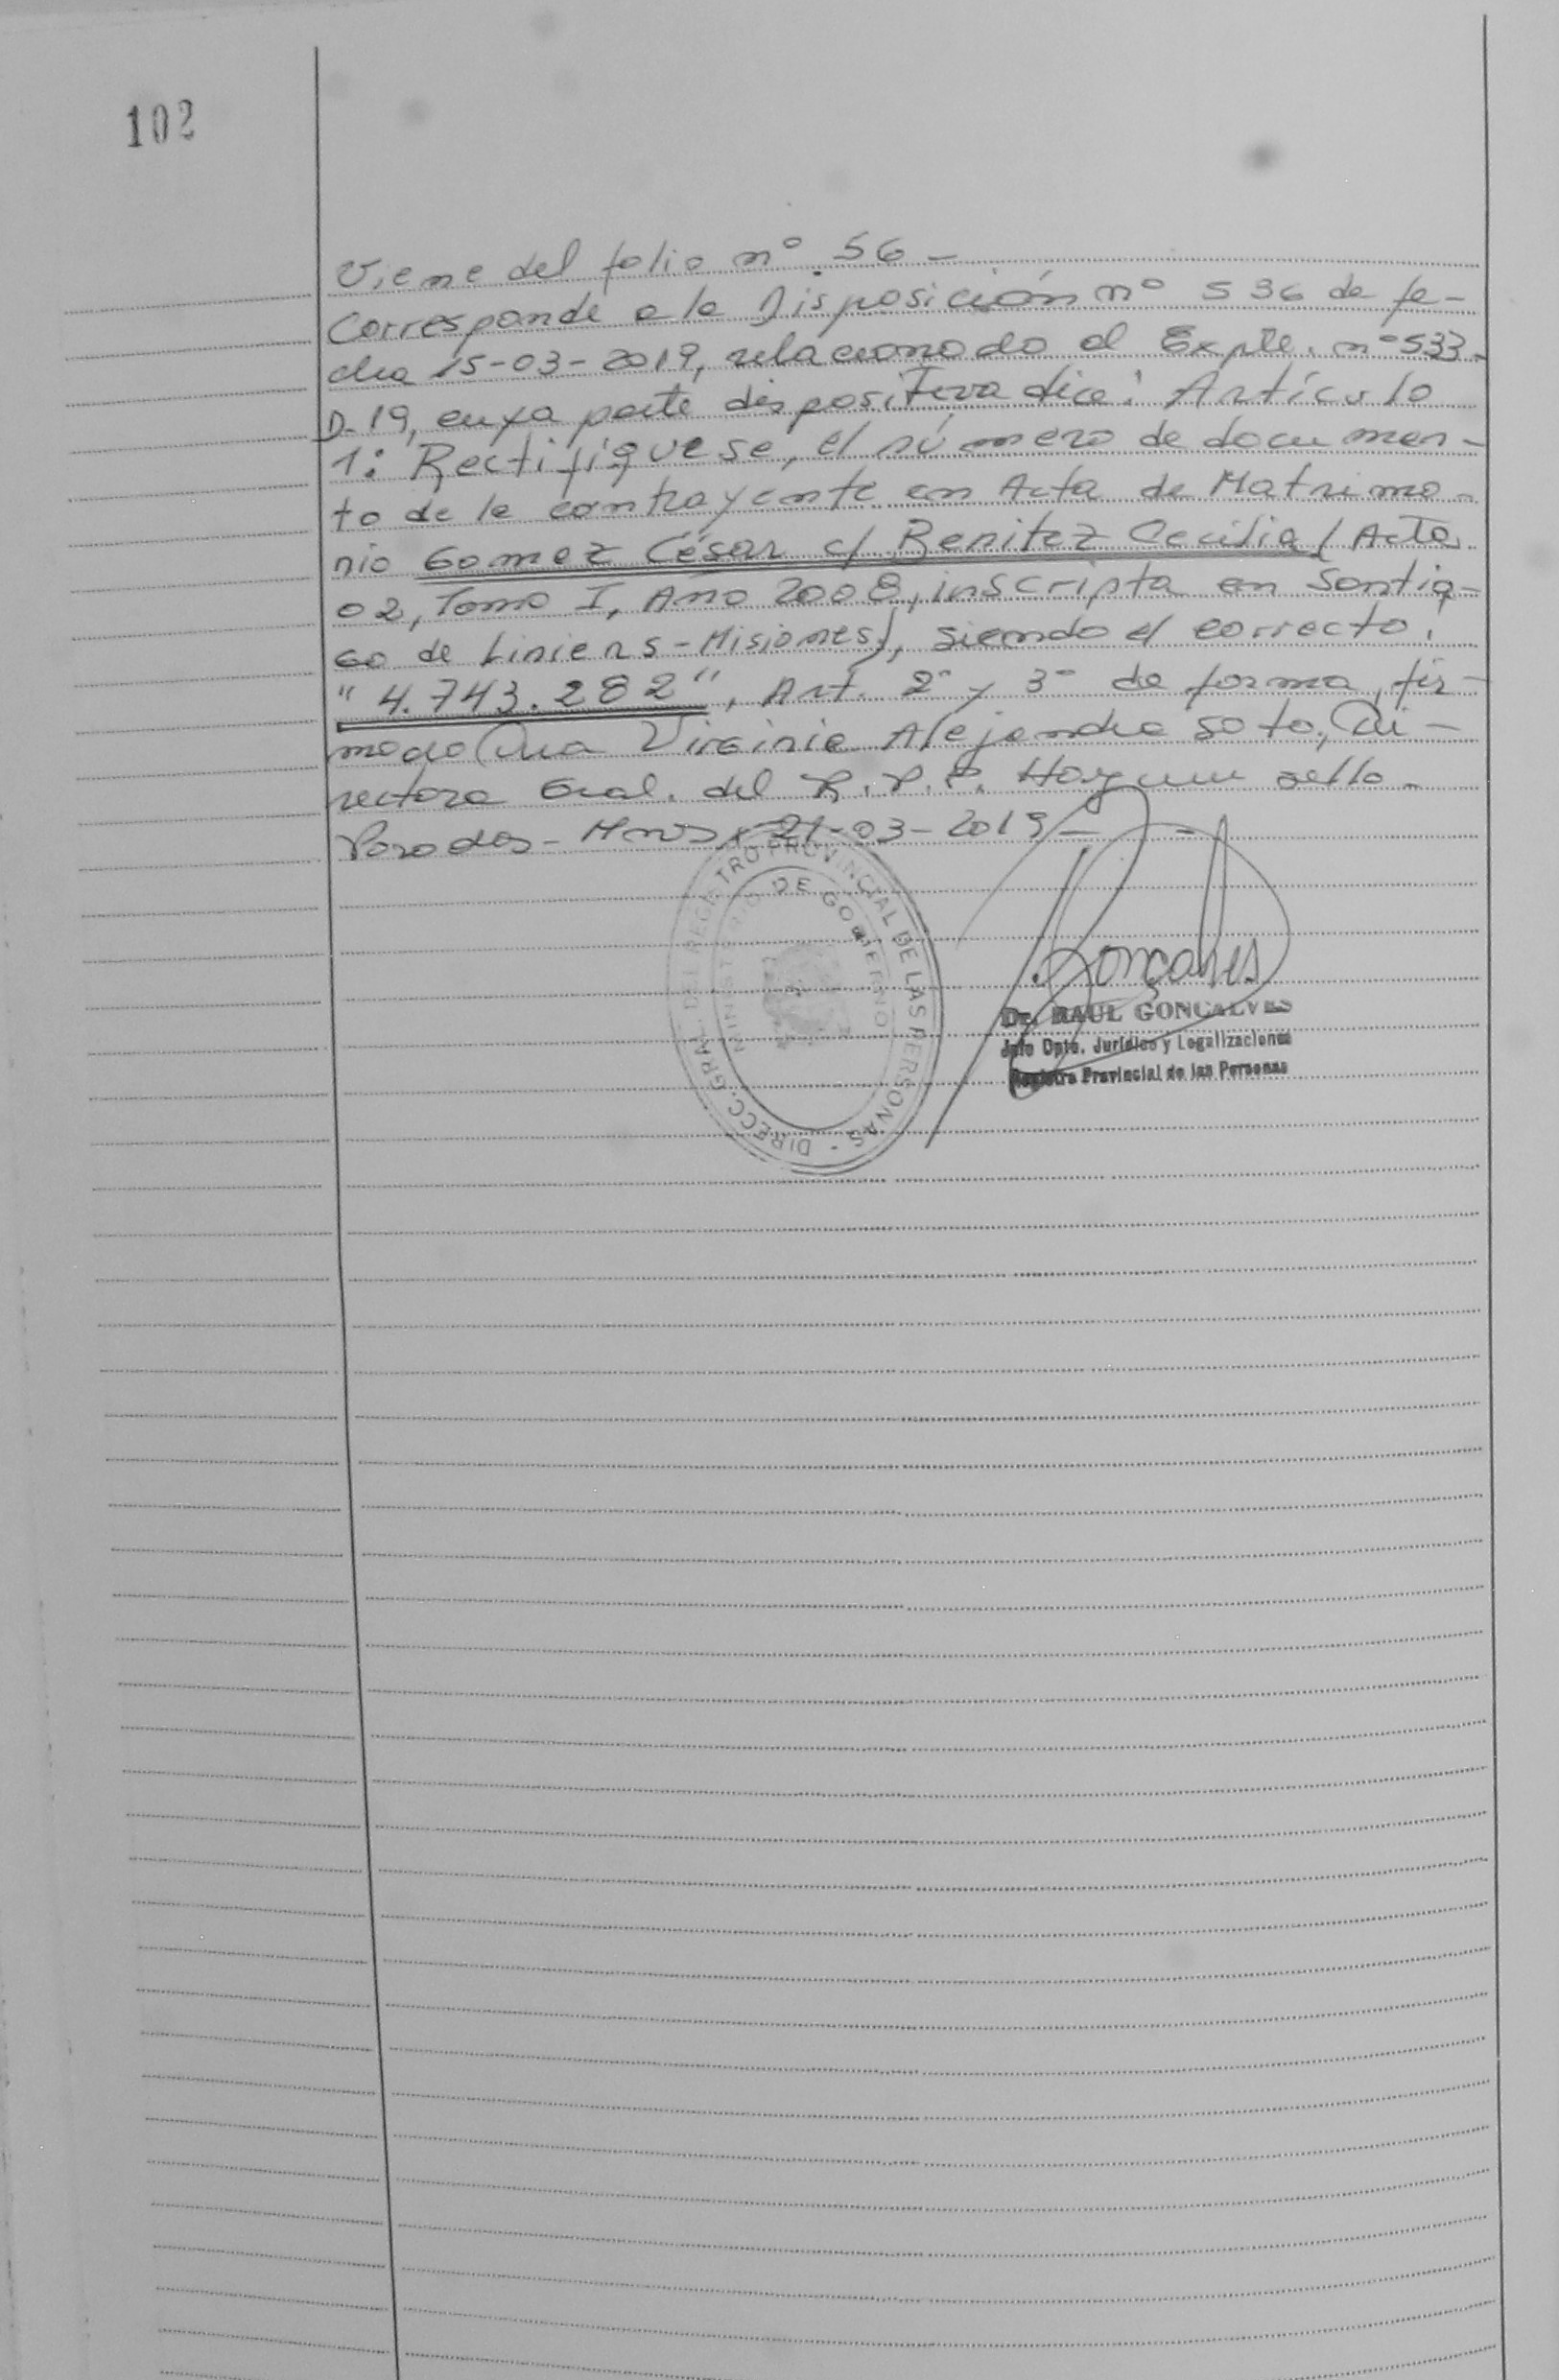 102
Viene del folio nº 56 -
Corresponde a la Disposición nº 536 de fe-
cha 15-03-2019, relacionado al Expte. nº 533-
D-19, cuya parte dispositiva dice: Artículo
1: Rectifíquese, el número de documen-
to de la contrayente en Acta de Matrimo-
nio Gomez César c/ Benitez Cecilia (Acta
02, Tomo I, Año 2008, inscripta en Santia-
go de Liniers - Misiones), siendo el correcto,
"4.743.282", Art. 2º y 3º de forma, fir-
mado Dra Virginia Alejandra Soto, Di-
rectora Gral. del R.P.P. Hay un sello -
Posadas - Mnes, 21-03-2019 - -
DIRECC. GRAL. DEL REGISTRO PROVINCIAL DE LAS PERSONAS -
MINISTERIO DE GOBIERNO
Goncalves
Dr. RAUL GONCALVES
Jefe Dpto. Jurídico y Legalizaciones
Registro Provincial de las Personas